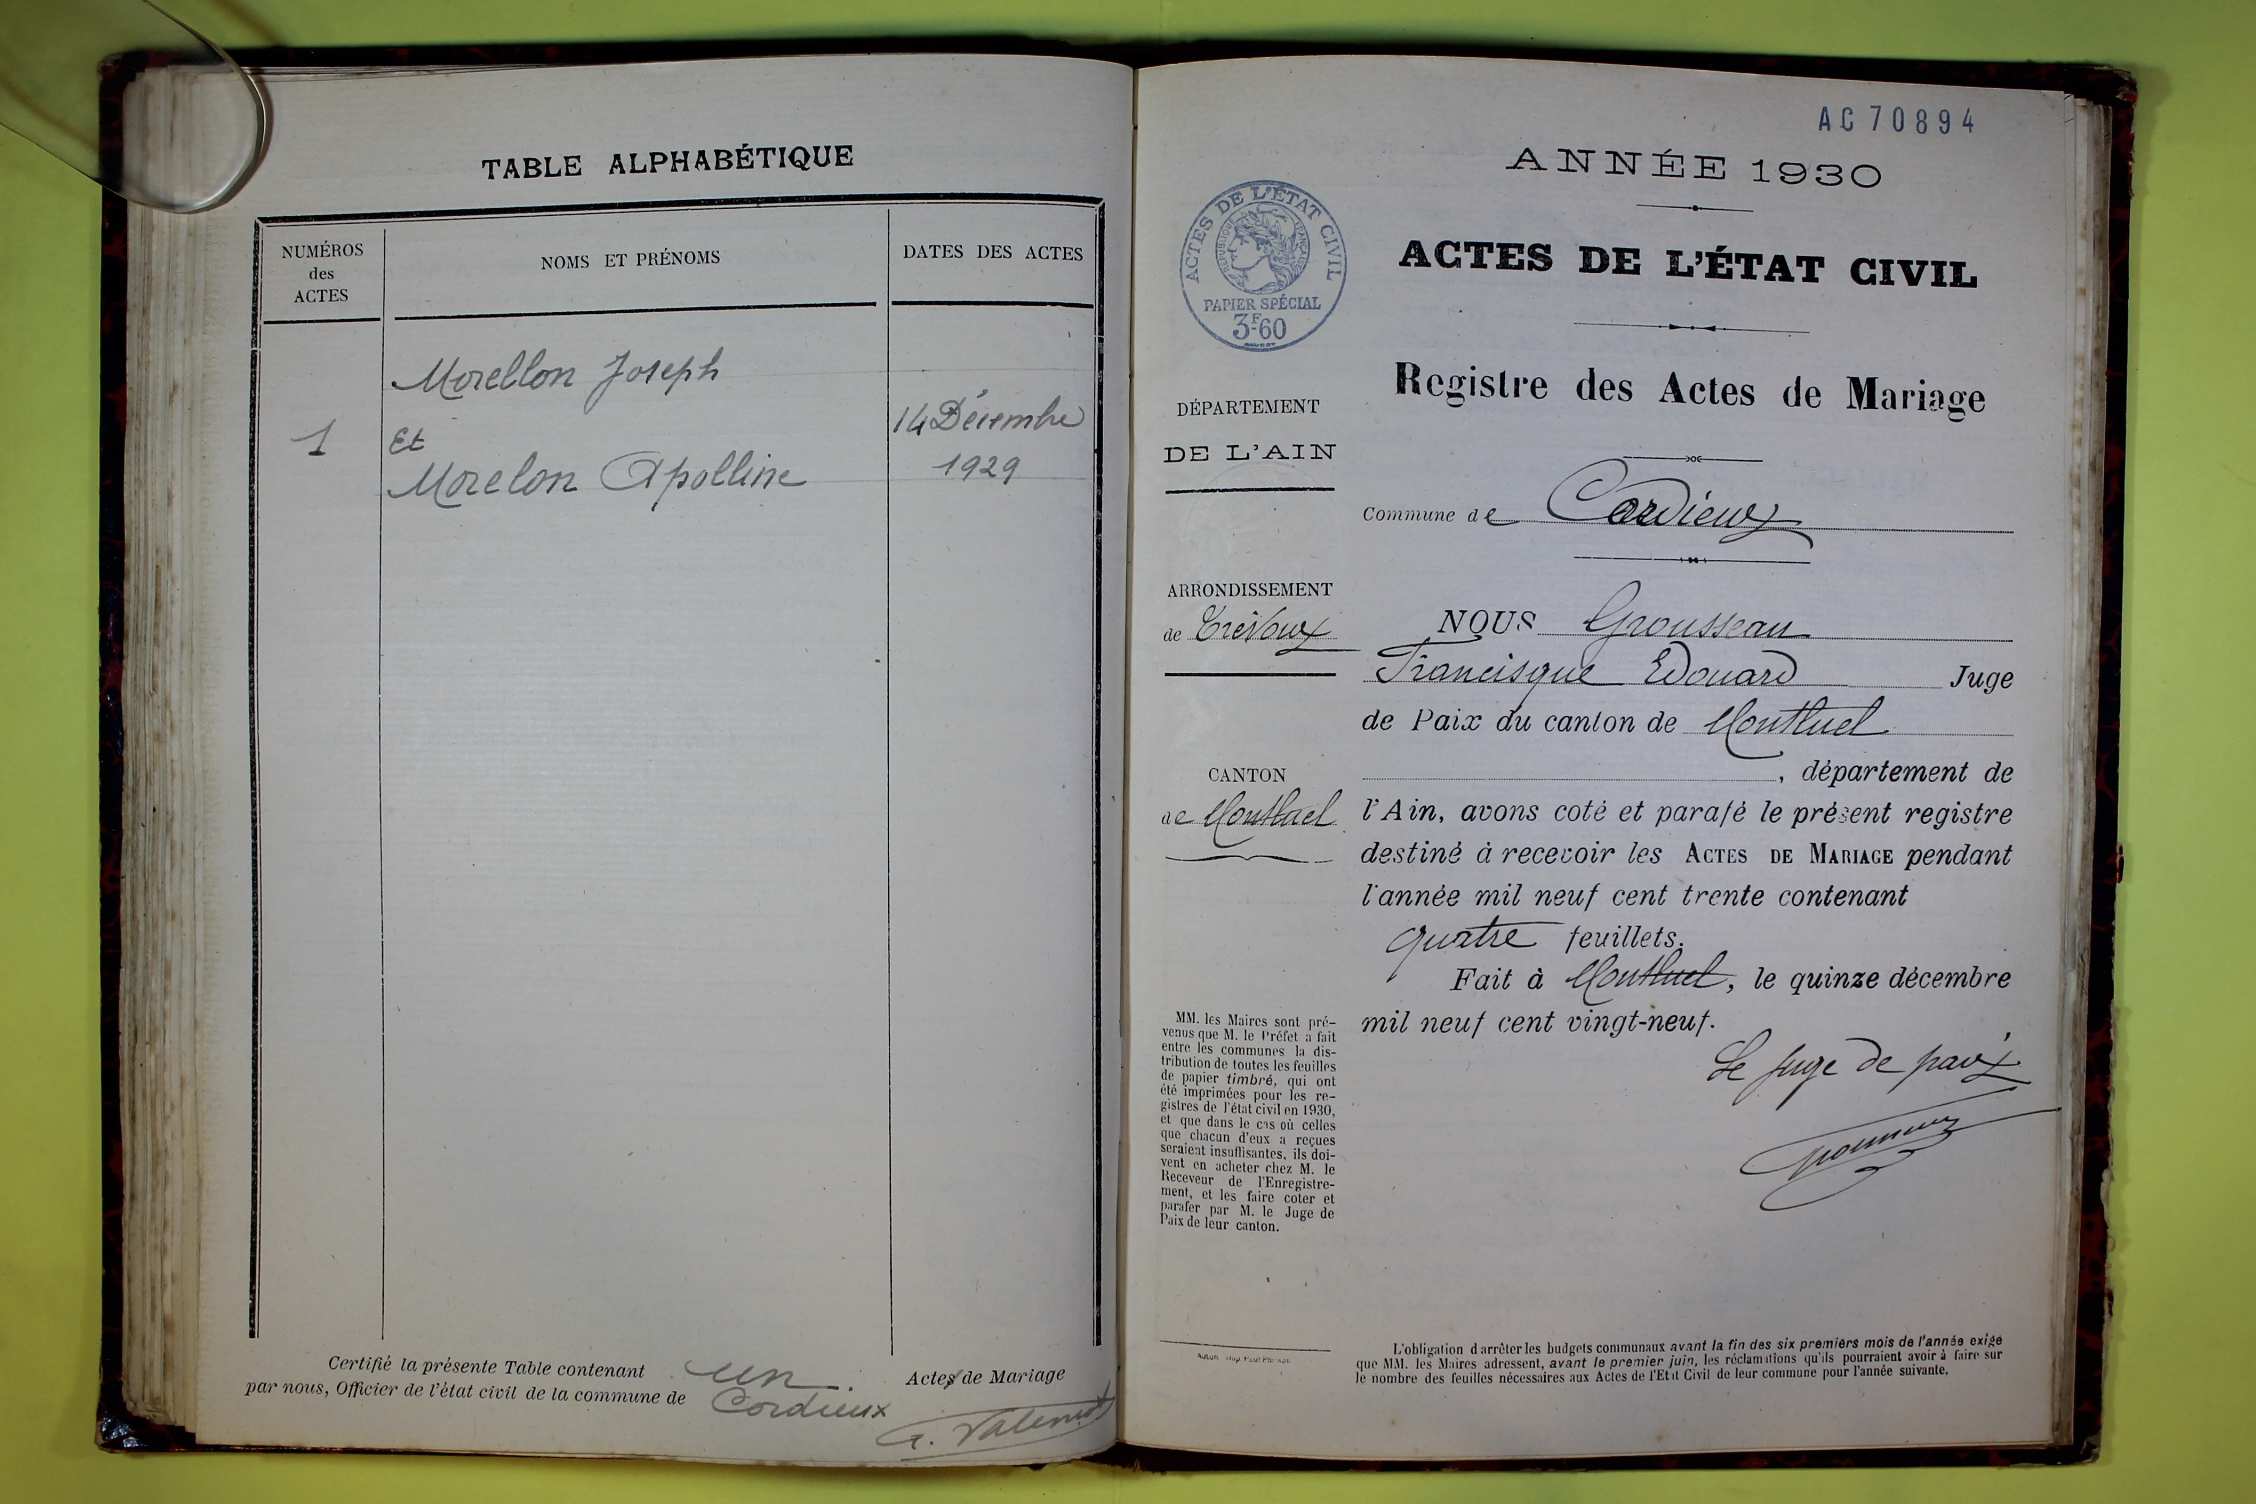 TABLE ALPHABÉTIQUE
NUMÉROS
des
ACTES
NOMS ET PRÉNOMS
DATES DES ACTES
Morellon Joseph
1
Et
14 Décembre
Morelon Apolline
1929
Certifié la présente Table contenant un. Actes de Mariage
par nous, Officier de l'état civil de la commune de Cordieux
AC 70894
ANNÉE 1930
ACTES DE L'ÉTAT CIVIL
RÉPUBLIQUE FRANÇAISE
PAPIER SPÉCIAL
3F60
ACTES DE L'ÉTAT CIVIL
Registre des Actes de Mariage
DÉPARTEMENT
DE L'AIN
Commune de Cordieux
ARRONDISSEMENT
de Trévoux
CANTON
de Montluel
NOUS Grousseau
Francisque Edouard Juge
de Paix du canton de Montluel
, département de
l'Ain, avons coté et parafé le présent registre
destiné à recevoir les ACTES DE MARIAGE pendant
l'année mil neuf cent trente contenant
quatre feuillets.
Fait à Montluel, le quinze décembre
mil neuf cent vingt-neuf.
Le juge de paix
MM. les Maires sont pré-
venus que M. le Préfet a fait
entre les communes la dis-
tribution de toutes les feuilles
de papier timbré, qui ont
été imprimées pour les re-
gistres de l'état civil en 1930,
et que dans le cas où celles
que chacun d'eux a reçues
seraient insuffisantes, ils doi-
vent en acheter chez M. le
Receveur de l'Enregistre-
ment, et les faire coter et
parafer par M. le Juge de
Paix de leur canton.
L'obligation d'arrêter les budgets communaux avant la fin des six premiers mois de l'année exige
que MM. les Maires adressent, avant le premier juin, les réclamations qu'ils pourraient avoir à faire sur
le nombre des feuilles nécessaires aux Actes de l'Etat Civil de leur commune pour l'année suivante.